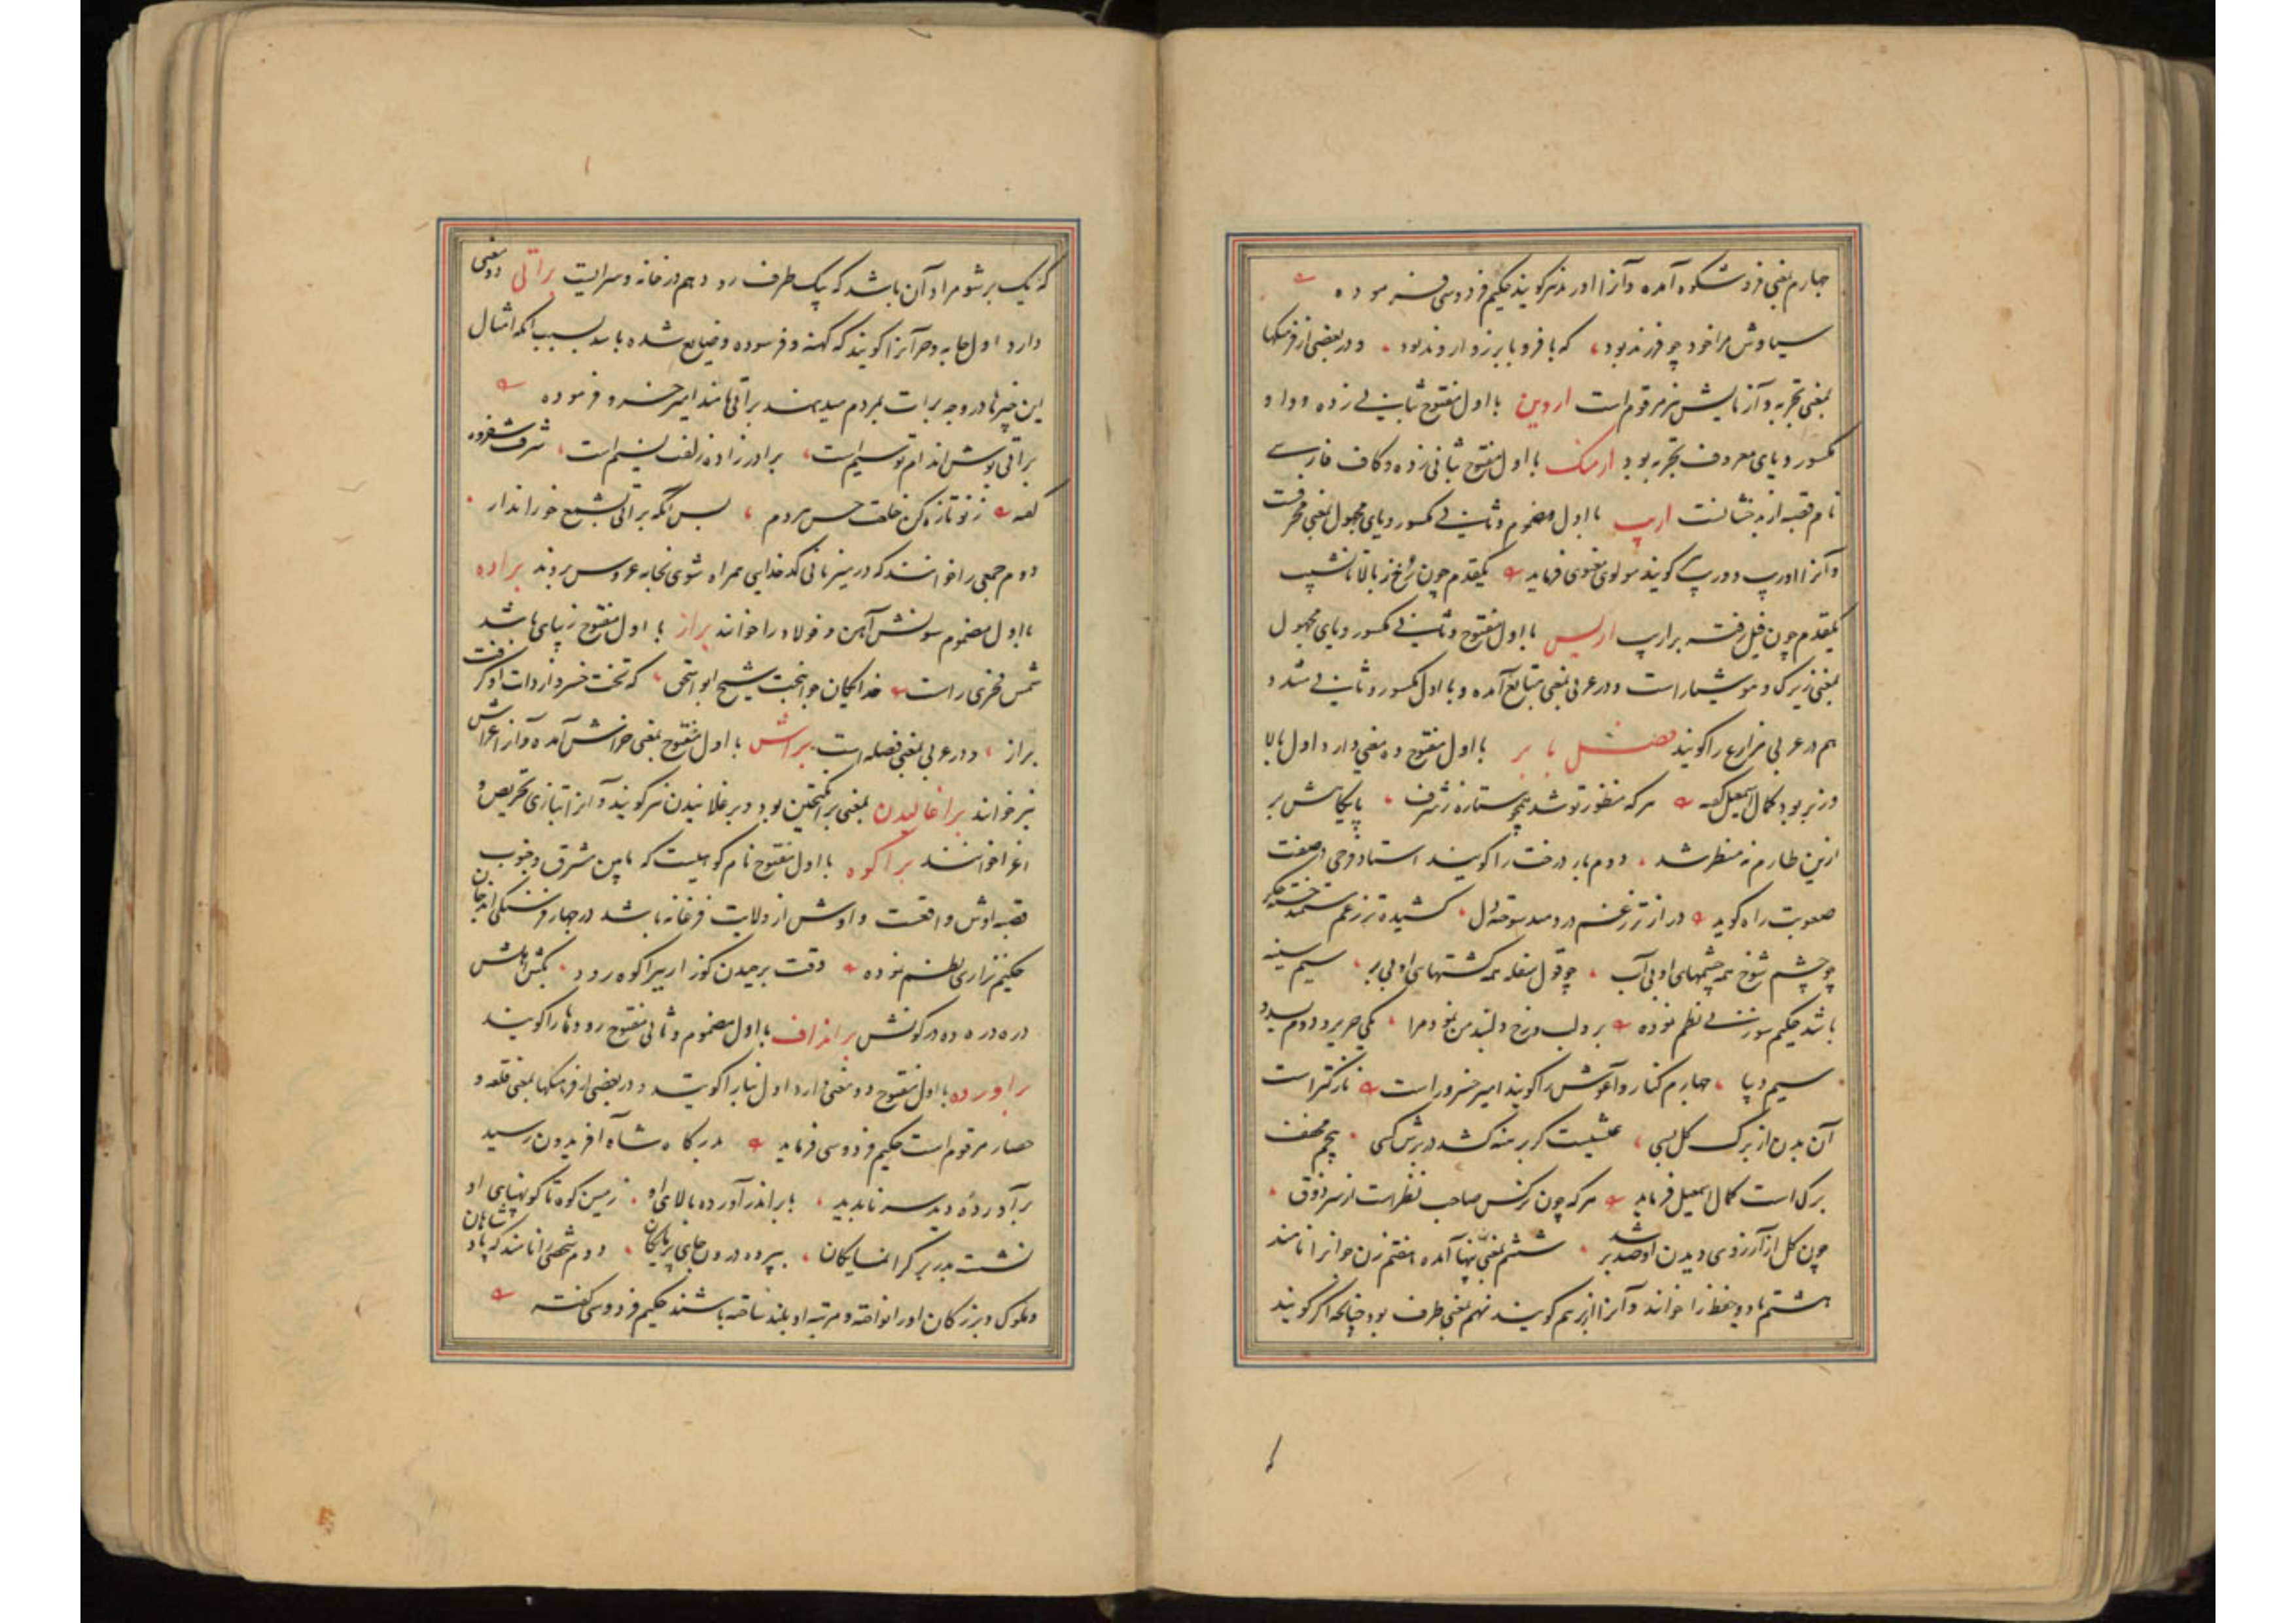 چهارم بمعنی فر و شکوه آمده و آنرا اورند نیز کویند حکیم فردوسی فرموده
سیاوش مرا خود چو فرزند بود که با فر و با برز و اروند بود و در بعضی از فرهنکها
بمعنی تجربه و آزمایش نیز مرقوم است اروین با اول مفتوح بثانی زده و واو
مکسور و یای معروف تجربه بود ارهنک با اول مفتوح بثانی زده و کاف فارسی
نام قصبه از بدخشانست اریب با اول مضموم و ثانی مکسور و یای مجهول بمعنی محرفست
و آنرا اورب و وریب کویند مولوی معنوی فرماید یکقدم چون رخ ز بالا تا نشیب
یکقدم چون فیل رفته بر اریب اریس با اول مفتوح و ثانی مکسور و یای مجهول
بمعنی زیرک و هوشیار است و در عربی بمعنی آمده و با اول مکسور و ثانی مشدد
هم در عربی مزارع را کویند فصل با بر با اول مفتوح ده معنی دارد اول بالا
و زبر بود کمال اسمعیل کفته هر که منظور تو شد همچو ستاره ز شرف پایکاهش بر
ازین طارم نه منظر شد دوم بار درخت را کویند استاد فرخی در صفت
صعوبت راه کوید دراز تر ز غم دردمند سوخته دل کشیده تر ز غم مستمند خسته جکر
چو چشم شوخ همه چشمهای او بی آب چو قول سفله همه کشتهای او بی بر سیم سینه
باشد حکیم سوزنی نظم نموده بر و لب و رخ دلبند من نمود مرا یکی حریر و دوم بسد و
سیم دیبا چهارم کنار و آغوش را کویند امیر خسرو راست نازکتر است
آن بدن از برک کل بسی عیشیست کر برهنه کشد در برش کسی پنجم مخفف
برک است کمال اسمعیل فرماید هر که چون نرکس صاحب نظر است از سر ذوق
چون کل از آرزوی دیدن او صد بر شد ششم بمعنی پهنا آمده هفتم زن جوانرا نامند
هشتم یاد و حفظ را خوانند و آنرا ازبر هم کویند نهم بمعنی طرف بود چنانچه اکر کویند
که یک بر شو مراد آن باشد که یک طرف رو دهم در خانه و سرایست براتی دو معنی
دارد اول جامه و چیز آنرا کویند که کهنه و فرسوده و ضایع شده باشد بسبب آنکه امثال
این چیزها در وجه برات بمردم میدهند براتی نامند امیر خسرو فرموده
براتی پوش اندام تو سیم است برادر زاده زلفت نسیم است شرف شفروه
کفته ز نو تازه کن خلعت حسن مردم پس آنکه براتی بشمع خور انداز
دوم جمعی را خوانند که در میزبانی کدخدایی همراه شوی بخانه عروس بروند براده
با اول مضموم سونش آهن و فولاد را خوانند براز با اول مفتوح زیبای باشد
شمس فخری راست خدایکان جوانبخت شیخ ابو اسحق که تخت خسرو از ذات او کرفت
براز و در عربی بمعنی فضله است براش با اول مفتوح بمعنی خراش آمده و آنرا خراش
نیز خوانند براغالیدن بمعنی برانکیختن بود و برغلانیدن نیز کویند و آنرا بتازی تحریص و
اغرا خوانند براکوه با اول مفتوح نام کوهیست که مابین مشرق و جنوب
قصبه اوش واقعست و اوش از ولایت فرغانه باشد در چهار فرسنکی اندجان
حکیم نزاری نظم نموده وقت برچیدن کوز ار ببراکوه رود
دره در ده در کوشش براذراف با اول مضموم و ثانی مفتوح رودها را کویند
براورده با اول مفتوح دو معنی دارد اول بنا را کویند و در بعضی از فرهنکها بمعنی قلعه و
حصار مرقوم است حکیم فردوسی فرماید بدرکاه شاه آفریدون رسید
برآورده دید سر ناپدید بابر اندر آورده بالای او زمین کوه تا کوه پهنای او
نشسته بدر بر کرانمایکان بپرده درون جای پرمایکان دوم شخصی را نامند که پادشاهان
و ملوک و بزرکان او را نواخته و مرتبه او بلند ساخته باشند حکیم فردوسی کفته